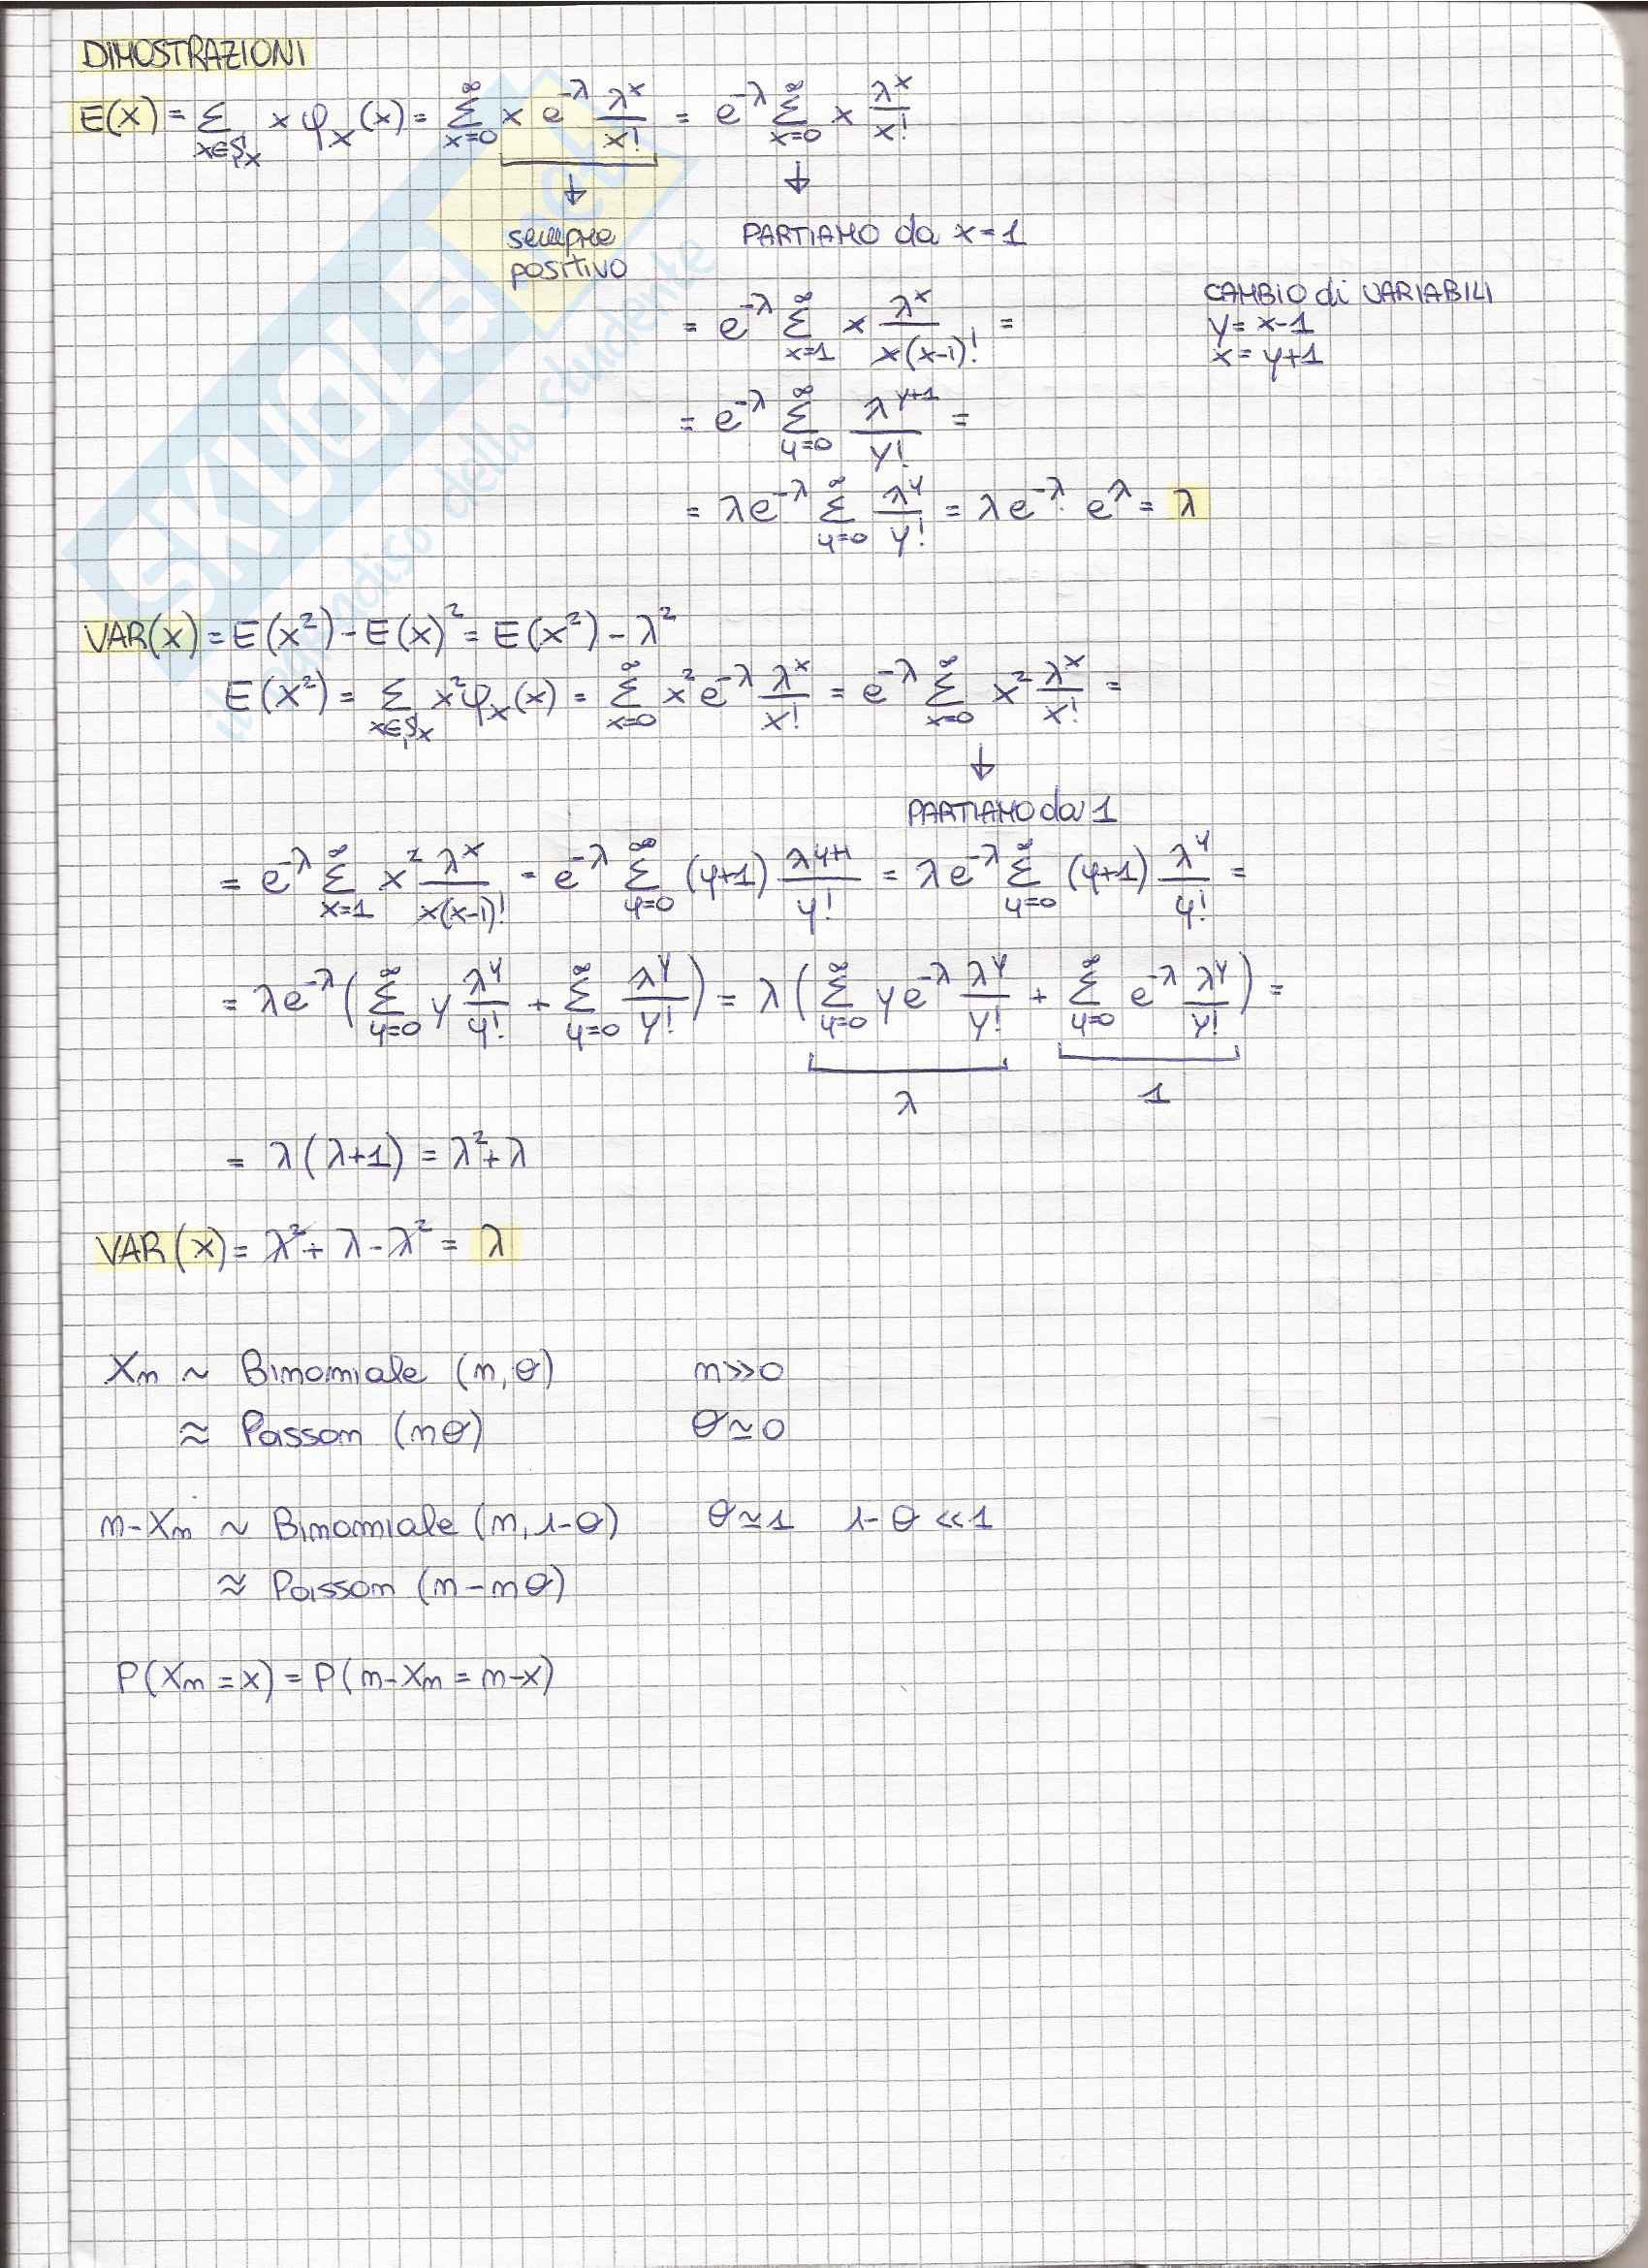 DIMOSTRAZIONI
E(x) = Σ_{x∈S_x} x φ_x(x) = Σ_{x=0}^{∞} x e^{-λ} λ^x/x! = e^{-λ} Σ_{x=0}^{∞} x λ^x/x!
↓ ↓
sempre positivo
PARTIAMO da x=1
CAMBIO di VARIABILI
y = x-1
x = y+1
= e^{-λ} Σ_{x=1}^{∞} x λ^x/x(x-1)! =
= e^{-λ} Σ_{y=0}^{∞} λ^{y+1}/y! =
= λe^{-λ} Σ_{y=0}^{∞} λ^y/y! = λe^{-λ} · e^λ = λ
VAR(x) = E(x²) - E(x)² = E(x²) - λ²
E(x²) = Σ_{x∈S_x} x² φ_x(x) = Σ_{x=0}^{∞} x² e^{-λ} λ^x/x! = e^{-λ} Σ_{x=0}^{∞} x² λ^x/x! =
↓
PARTIAMO da 1
= e^{-λ} Σ_{x=1}^{∞} x² λ^x/x(x-1)! = e^{-λ} Σ_{y=0}^{∞} (y+1) λ^{y+1}/y! = λe^{-λ} Σ_{y=0}^{∞} (y+1) λ^y/y! =
= λe^{-λ} ( Σ_{y=0}^{∞} y λ^y/y! + Σ_{y=0}^{∞} λ^y/y! ) = λ ( Σ_{y=0}^{∞} y e^{-λ} λ^y/y! + Σ_{y=0}^{∞} e^{-λ} λ^y/y! ) =
λ 1
= λ(λ+1) = λ² + λ
VAR(x) = λ² + λ - λ² = λ
Xn ~ Binomiale (n, θ) n>>0
≈ Poisson (nθ) θ≃0
n-Xn ~ Binomiale (n, 1-θ) θ≃1 1-θ <<1
≈ Poisson (n-nθ)
P(Xn = x) = P(n-Xn = n-x)
SKUOLA.net
il paradiso dello studente